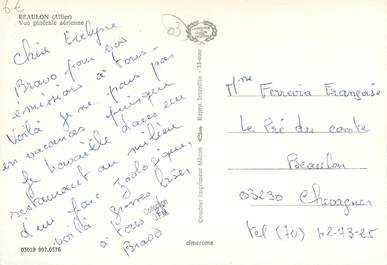 8€
BEAULON (Allier)
Vue générale aérienne
Chère Evelyne
Bravo pour vos
émissions à tous.
Voilà je ne pars pas
en vacances puisque
je travaille dans un
restaurant au milieu
d'un parc zoologique,
voilà grosses bises
à tous
Bravo
03019 997.0376
Combier Imprimeur Mâcon
Reprs. Interdite - 35-000
cimcrome
Collection
Mme Ferreira Françoise
Le Pré du comte
Beaulon
03230 Chevagnes
tel (70) 42-73-25